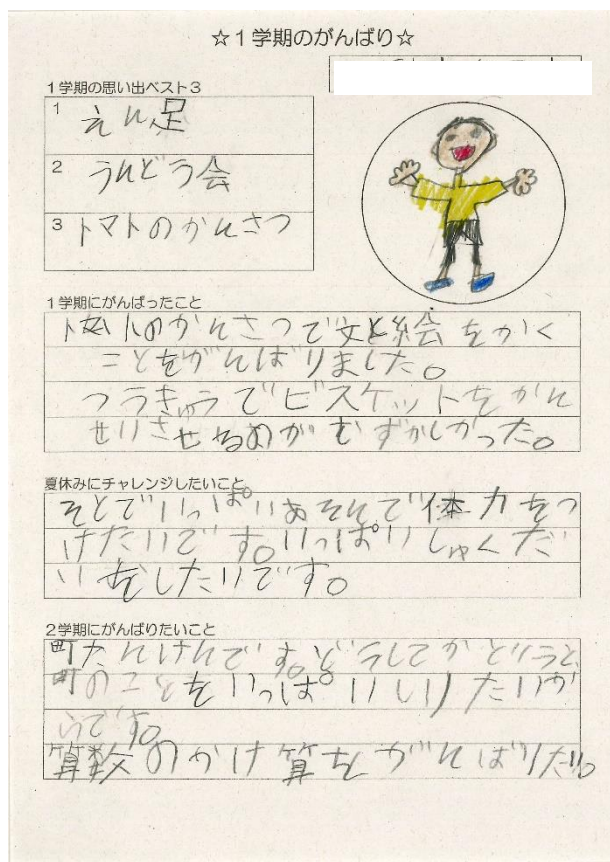 ☆1学期のがんばり☆
1学期の思い出ベスト3
1 えん足
2 うんどう会
3 トマトのかんさつ
1学期にがんばったこと
トマトのかんさつで文と絵をかく
ことをがんばりました。
つうきゅうでビスケットをかん
せいさせるのがむずかしかった。
夏休みにチャレンジしたいこと
そとでいっぱいあそんで体力をつ
けたいです。いっぱいしゅくだ
いをしたいです。
2学期にがんばりたいこと
町たんけんです。どうしてかというと
町のことをいっぱいしりたいか
らです。
算数のかけ算をがんばりたい。